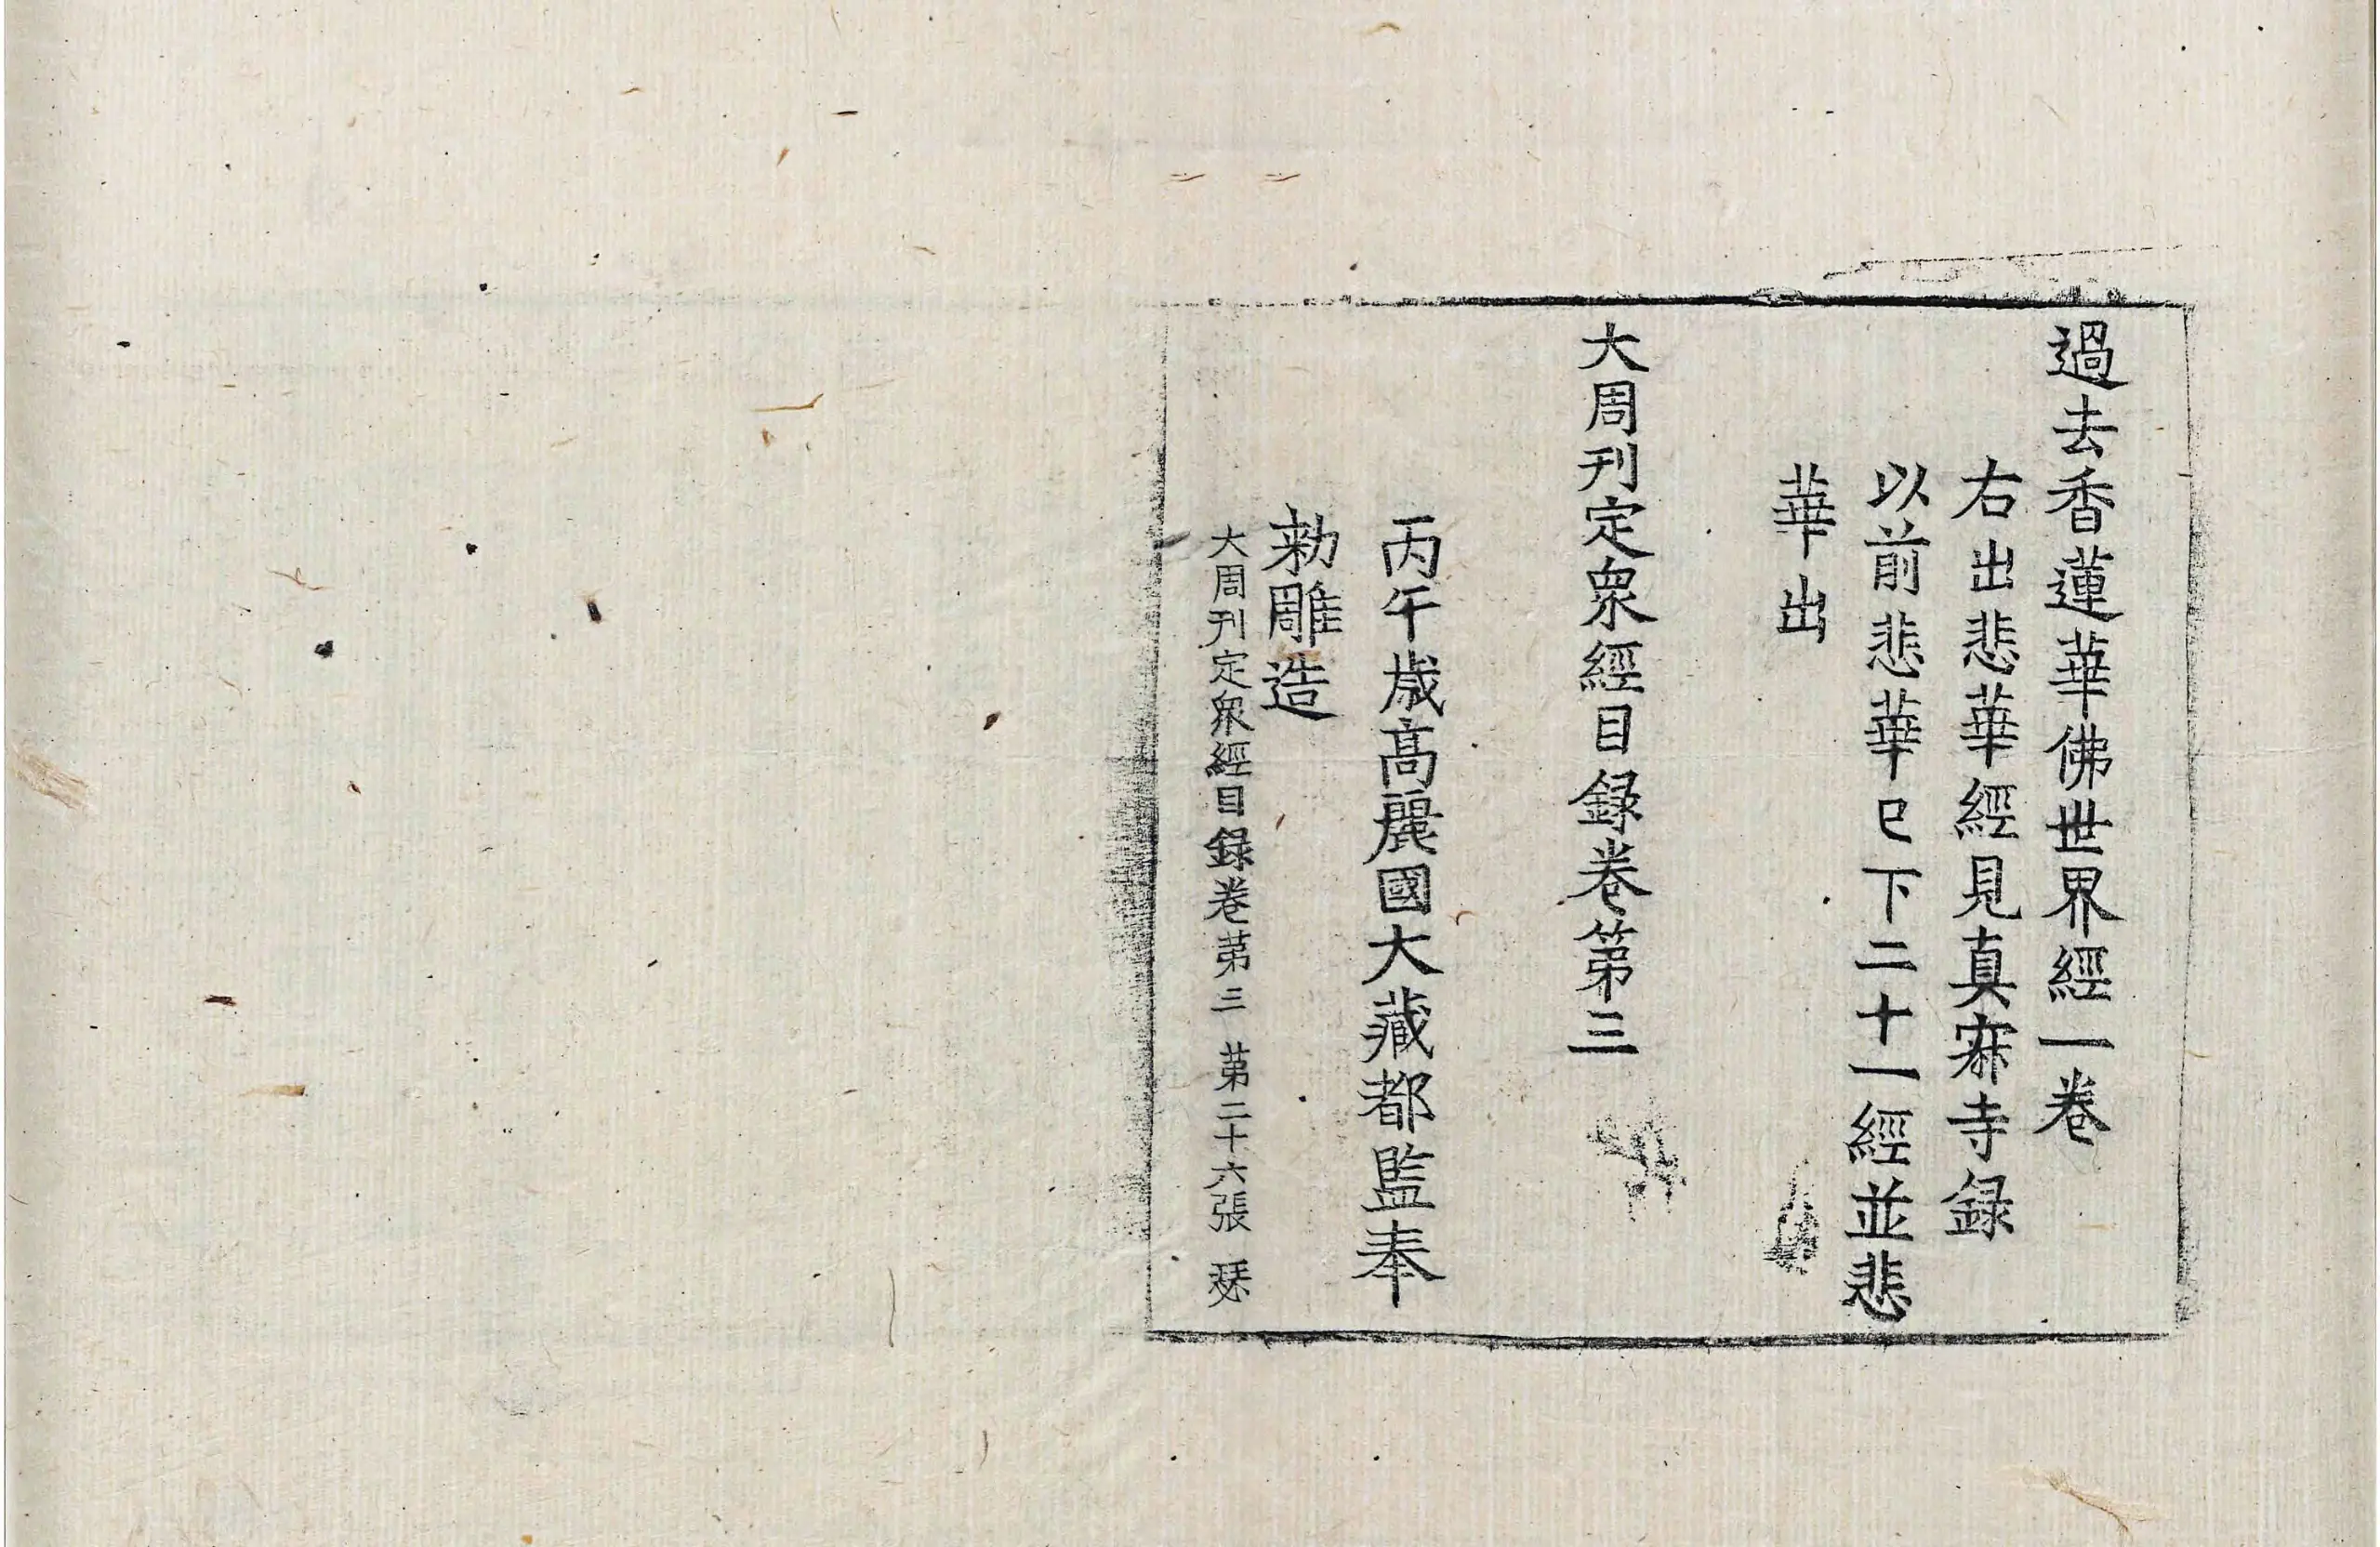 過去香蓮華佛世界經一卷
右出悲華經見真寂寺録
以前悲華已下二十一經並悲
華出
大周刊定衆經目録卷第三
丙午歳高麗國大藏都監奉
勅雕造
大周刊定衆經目録卷第三 第二十六張 瑟